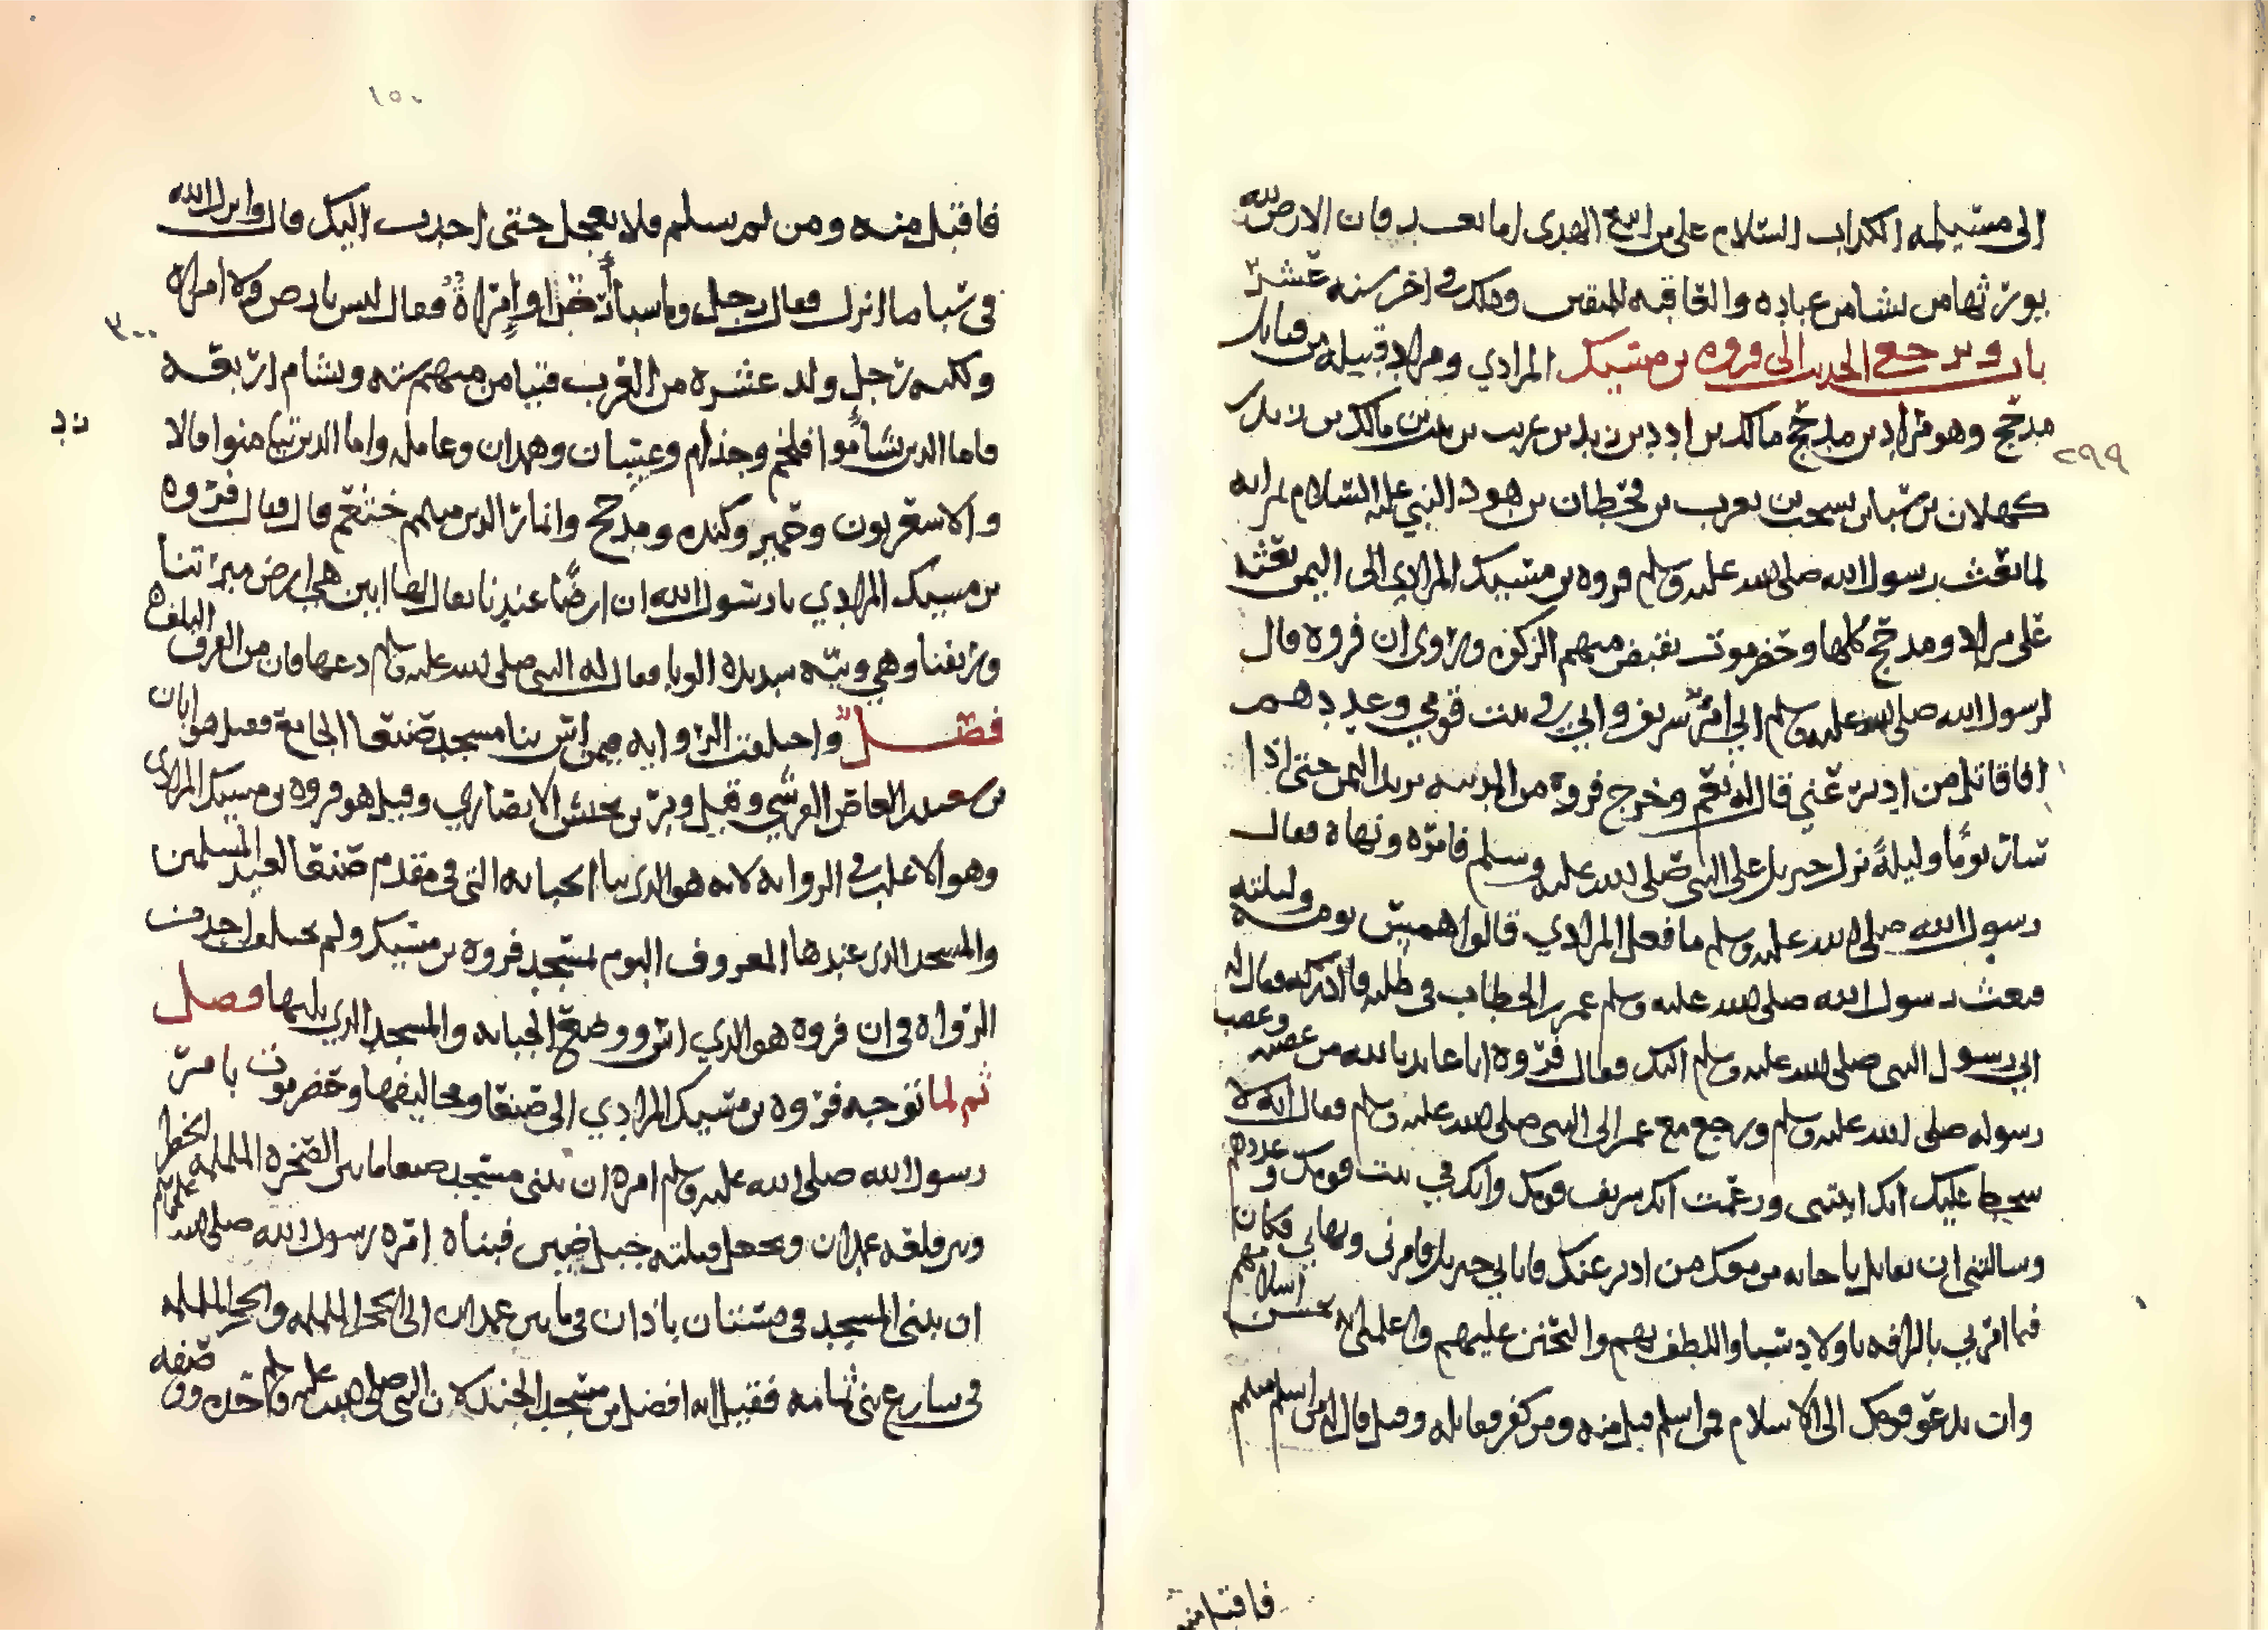 الى مسيلمه الكداب السلام على من اتبع الهدى اما بعد فان الارض لله
يورثها من يشا من عباده والعاقبه للمتقين وهلك في اخر سنه عشر
باب ويرجع الحديث الى فروه بن مسيك المرادي ومراد قبيله من قبايل
مدحج وهو مراد بن مدحج مالك بن ادد بن زيد بن عريب بن مالك بن زيد بن
كهلان بن سبا بن يسحب بن يعرب بن قحطان بن هود النبي عليه السلام ثم انه
لما بعث رسول الله صلى الله عليه وسلم فروه بن مسيك المرادي الى اليمن بعثه
على مراد ومدحج كلها وحضرموت يقبض منهم الزكوه وروى ان فروه قال
لرسول الله صلى الله عليه وسلم اني امرؤ شريف واني في بيت قومي وعددهم
افاقاتل من ادبر عني قال له نعم وخرج فروة من المدينه يريد اليمن حتى اذا
سار يوما وليلة نزل جبريل على النبي صلى الله عليه وسلم فامره ونهاه فقال
رسول الله صلى الله عليه وسلم ما فعل المرادي قالوا يومه وليلته
فبعث رسول الله صلى الله عليه وسلم عمر بن الخطاب في طلبه فادركه فقال له
رسول النبي صلى الله عليه وسلم اليك فقال فروه انا عايد بالله من غضبه وغضب
رسوله صلى الله عليه وسلم ورجع مع عمر الى النبي صلى الله عليه وسلم فقال انه لا
سخط عليك انك اتيتني وزعمت انك شريف قومك وانك في بيت قومك وعددهم
وسالتني ان تقاتل من قومك من ادبر عنك فاتاني جبريل فامرني ونهاني فكان
فيما امرني بالرافه باولاد سبا واللطف بهم والتحنن عليهم اسلامهم
وان تدعو قومك الى الاسلام فمن اسلم قبل منه ومن كفر فقاتله وقيل قال له من اسلم منهم
٢٩٩
فاقبل منه
١٥٠
فاقبل منه ومن لم يسلم فلا تعجل حتى احدث اليك قال وانزل الله
في سبا ما انزل فقال رجل وما سبا أرضا او إمراةٌ فقال ليس بارض ولا امراه
ولكنه رجل ولد عشره من العرب فتيامن منهم سته وتشام اربعه
فاما الدين تشأموا فلخم وجذام وغسان وعامله واما الدين تيامنوا فالازد
والاشعريون وحمير وكنده ومدحج وانمار الدين منهم خثعم قال فقال فروه
بن مسيك المرادي يا رسول الله ان ارضًا عندنا يقال لها ابين هي ارض ميرتنا
وريفنا وهي وبيه شديده الوبا فقال له النبي صلى الله عليه وسلم دعها فان من القرف التلف
فصل واختلفت الروايه فيمن اسس بنا مسجد صنعا الجامع فقيل هو ابان
بن سعيد بن العاص القرشي وقيل وبر بن يحنس الانصاري وقيل هو فروه بن مسيك المرادي
وهو الاغلب في الروايه لانه هو الذي بنا الجبانه التي في مقدم صنعا لعيد المسلمين
والمسجد الذي عندها المعروف اليوم لمسجد فروه بن مسيك ولم يختلف احد من
الرواه في ان فروه هو الذي اسس ووضع الجبانه والمسجد الذي يليها فصل
ثم لما توجه فروه بن مسيك المرادي الى صنعا ومخاليفها وحضرموت بامر
رسول الله صلى الله عليه وسلم امره ان يبنى مسجد صنعا ما بين الصخره الململمه
وبين قلعه غمدان ويجعل قبلته جبل ضين فبناه امره رسول الله صلى الله عليه وسلم
ان يبني المسجد في بستان باذان في ما بين غمدان الى الحجر الململمه والحجر الململمه
في سارع بني ثمامه فقيل انه افضل من مسجد الجند لان النبي صلى الله عليه وسلم حده ووصفه
٣٠٠